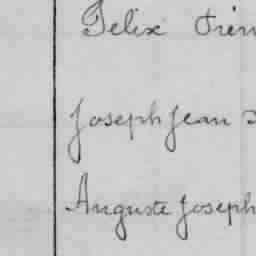 Felix
Joseph Jean
Auguste Joseph